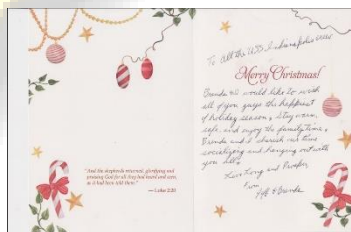 "And the shepherds returned, glorifying and
praising God for all they had heard and seen,
as it had been told them."
— Luke 2:20
To All the
Merry Christmas!
Brenda & I would like to wish
all of you guys the happiest
of holiday season, stay warm,
safe, and enjoy the family time,
Brenda and I cherish our time
socializing and hanging out with
you all,
Live Long and Prosper
From
Jeff & Brenda